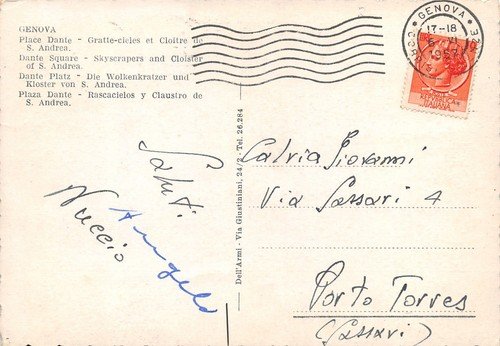 GENOVA
Place Dante - Gratte-cieles et Cloître de
S. Andrea.
Dante Square - Skyscrapers and Cloister
of S. Andrea.
Dante Platz - Die Wolkenkratzer und
Kloster von S. Andrea.
Plaza Dante - Rascacielos y Claustro de
S. Andrea.
GENOVA
17-18
Saluti
Angelo
Nuccio
Dell'Armi - Via Giustiniani, 24/2 - Tel. 26.284
Salvia Giovanni
Via Sassari 4
Porto Torres
(Sassari)